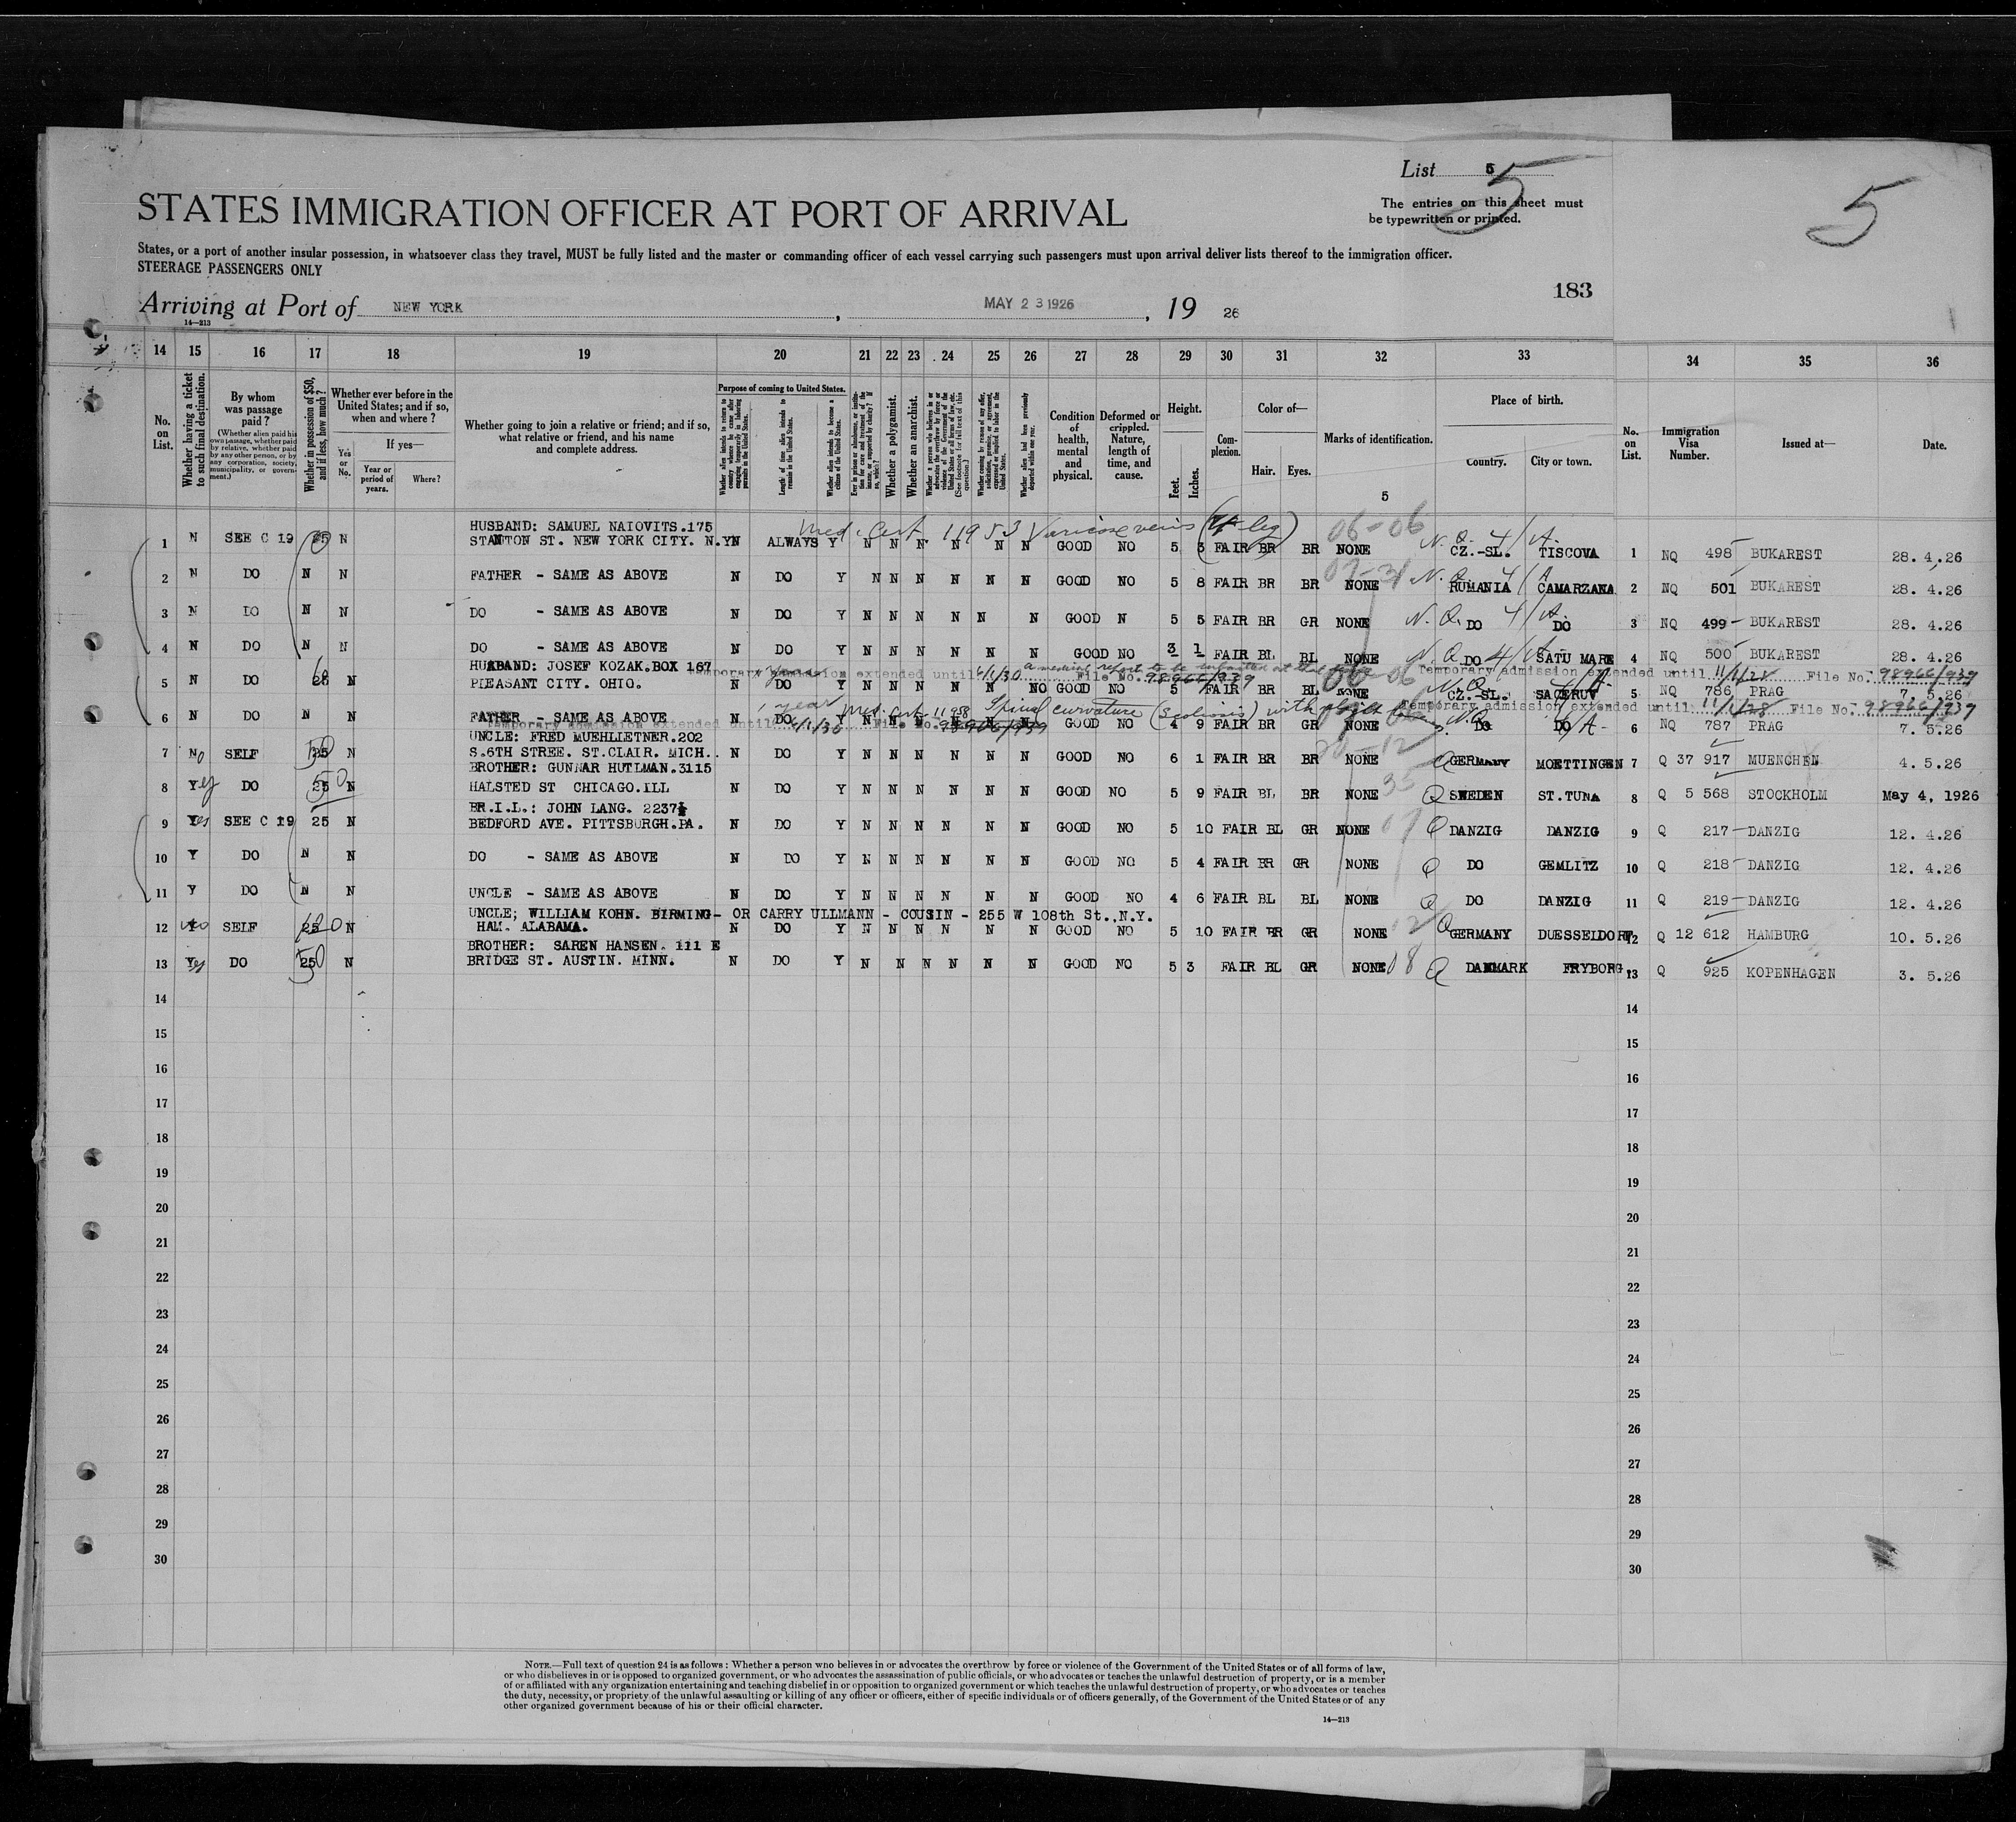 List 5
5
5
The entries on this sheet must
be typewritten or printed.
STATES IMMIGRATION OFFICER AT PORT OF ARRIVAL
States, or a port of another insular possession, in whatsoever class they travel, MUST be fully listed and the master or commanding officer of each vessel carrying such passengers must upon arrival deliver lists thereof to the immigration officer.
STEERAGE PASSENGERS ONLY
183
Arriving at Port of NEW YORK, MAY 23 1926, 19 26
14—213
14 15 16 17 18 19 20 21 22 23 24 25 26 27 28 29 30 31 32 33 34 35 36
No. on List.
Whether having a ticket to such final destination.
By whom was passage paid?
(Whether alien paid his own passage, whether paid by relative, whether paid by any other person, or by any corporation, society, municipality, or government.)
Whether in possession of $50, and if less, how much?
Whether ever before in the United States; and if so, when and where?
Yes or No.
If yes—
Year or period of years.
Where?
Whether going to join a relative or friend; and if so, what relative or friend, and his name and complete address.
Purpose of coming to United States.
Whether alien intends to return to country whence he came after engaging temporarily in laboring pursuits in the United States.
Length of time alien intends to remain in the United States.
Whether alien intends to become a citizen of the United States.
Ever in prison or almshouse, or institution for care and treatment of the insane, or supported by charity? If so, which?
Whether a polygamist.
Whether an anarchist.
Whether a person who believes in or advocates the overthrow by force or violence of the Government of the United States or all forms of law, etc. (See footnote for full text of this question.)
Whether coming by reason of any offer, solicitation, promise, or agreement, expressed or implied, to labor in the United States.
Whether alien had been previously deported within one year.
Condition of health, mental and physical.
Deformed or crippled. Nature, length of time, and cause.
Height.
Feet. Inches.
Complexion.
Color of—
Hair. Eyes.
Marks of identification.
5
Place of birth.
Country. City or town.
No. on List.
Immigration Visa Number.
Issued at—
Date.
Med. Cert. 11953 Varicose veins (leg) 06-06
HUSBAND: SAMUEL NAIOVITS.175
1 N SEE C 19 25 N STANTON ST. NEW YORK CITY. N.Y N ALWAYS Y N N N N N N GOOD NO 5 3 FAIR BR BR NONE N.Q. 4/A. CZ.-SL. TISCOVA 1 NQ 498 BUKAREST 28. 4.26
2 N DO N N FATHER - SAME AS ABOVE N DO Y N N N N N N GOOD NO 5 8 FAIR BR BR NONE N.Q. 4/A RUMANIA CAMARZANA 2 NQ 501 BUKAREST 28. 4.26
3 N DO N N DO - SAME AS ABOVE N DO Y N N N N N N GOOD N 5 5 FAIR BR GR NONE N.Q. 4/A. DO DO 3 NQ 499 BUKAREST 28. 4.26
4 N DO N N DO - SAME AS ABOVE N DO Y N N N N N N GOOD NO 3 1 FAIR BL BL NONE N.Q. 4/A DO SATU MARE 4 NQ 500 BUKAREST 28. 4.26
HUSBAND: JOSEF KOZAK.BOX 167
Temporary admission extended until 6/1/30 File No. 98966/939
Temporary admission extended until 11/1/28 File No. 98966/939
5 N DO 25 N PLEASANT CITY. OHIO. N DO Y N N N N N NO GOOD NO 5 FAIR BR BL NONE 06-06 N.Q. 4/A CZ.-SL. 5 NQ 786 PRAG 7. 5.26
1 year Med. Cert. 11958 Spinal curvature (Scoliosis) with
Temporary admission extended until 11/1/28 File No. 98966/939
6 N DO N N FATHER - SAME AS ABOVE N DO Y N N N N N N GOOD NO 4 9 FAIR BR GR NONE N.Q. DO DO 4/A- 6 NQ 787 PRAG 7. 5.26
Temporary admission extended until 6/1/30 File No. 98966/939
UNCLE: FRED MUEHLIETNER.202
7 No SELF 25 50 N S.6TH STREE. ST.CLAIR. MICH. N DO Y N N N N N N GOOD NO 6 1 FAIR BR BR NONE Q GERMANY MOETTINGEN 7 Q 37 917 MUENCHEN 4. 5.26
BROTHER: GUNNAR HUTLMAN.3115
8 Yes DO 25 50 N HALSTED ST CHICAGO.ILL N DO Y N N N N N N GOOD NO 5 9 FAIR BL BR NONE 35 Q SWEDEN ST.TUNA 8 Q 5 568 STOCKHOLM May 4, 1926
BR.I.L.: JOHN LANG. 2237½
9 Yes SEE C 19 25 N BEDFORD AVE. PITTSBURGH.PA. N DO Y N N N N N N GOOD NO 5 10 FAIR BL GR NONE 07 Q DANZIG DANZIG 9 Q 217 DANZIG 12. 4.26
10 Y DO N N DO - SAME AS ABOVE N DO Y N N N N N N GOOD NO 5 4 FAIR BR GR NONE Q DO GEMLITZ 10 Q 218 DANZIG 12. 4.26
11 Y DO N N UNCLE - SAME AS ABOVE N DO Y N N N N N N GOOD NO 4 6 FAIR BL BL NONE Q DO DANZIG 11 Q 219 DANZIG 12. 4.26
UNCLE; WILLIAM KOHN. BIRMING- OR CARRY ULLMANN - COUSIN - 255 W 108th St.,N.Y.
12 No SELF 25 N HAM. ALABAMA. N DO Y N N N N N N GOOD NO 5 10 FAIR BR GR NONE 12 Q GERMANY DUESSELDORF 12 Q 12 612 HAMBURG 10. 5.26
BROTHER: SAREN HANSEN. 111 E
13 Yes DO 25 50 N BRIDGE ST. AUSTIN. MINN. N DO Y N N N N N N GOOD NO 5 3 FAIR BL GR NONE 08 Q DANMARK FRYBORG 13 Q 925 KOPENHAGEN 3. 5.26
14 14
15 15
16 16
17 17
18 18
19 19
20 20
21 21
22 22
23 23
24 24
25 25
26 26
27 27
28 28
29 29
30 30
NOTE.—Full text of question 24 is as follows: Whether a person who believes in or advocates the overthrow by force or violence of the Government of the United States or of all forms of law,
or who disbelieves in or is opposed to organized government, or who advocates the assassination of public officials, or who advocates or teaches the unlawful destruction of property, or is a member
of or affiliated with any organization entertaining and teaching disbelief in or opposition to organized government or which teaches the unlawful destruction of property, or who advocates or teaches
the duty, necessity, or propriety of the unlawful assaulting or killing of any officer or officers, either of specific individuals or of officers generally, of the Government of the United States or of any
other organized government because of his or their official character.
14—213